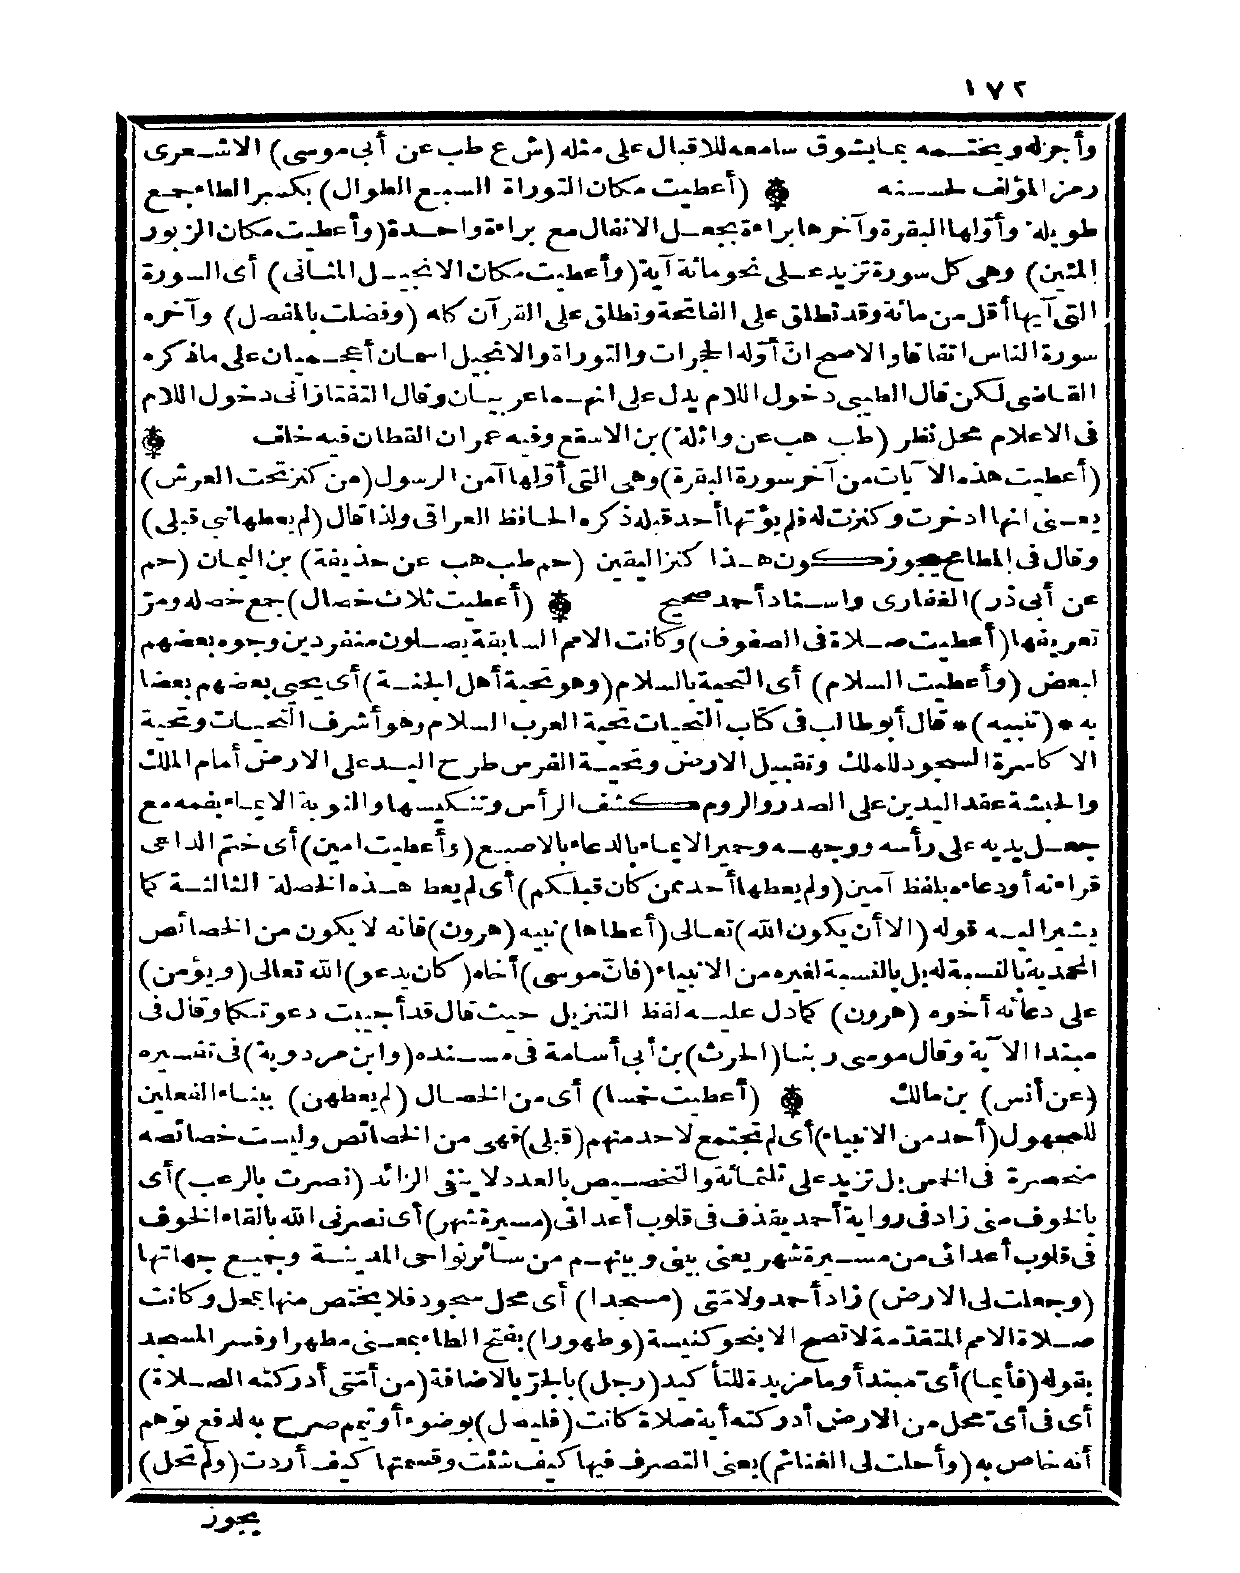 ١٧٢
وأجزله ويختمه بما يشوق سامعه للاقبال على مثله (ش ع طب عن أبى موسى) الاشعرى
رمز المؤلف لحسنه ۞ (أعطيت مكان التوراة السبع الطوال) بكسر الطاء جمع
طويلة وأوّلها البقرة وآخرها براءة بجعل الانفال مع براءة واحدة (وأعطيت مكان الزبور
المئين) وهى كل سورة تزيد على نحو مائة آية (وأعطيت مكان الانجيل المثانى) أى السورة
التى آيها أقل من مائة وقد تطلق على الفاتحة وتطلق على القرآن كله (وفضلت بالمفصل) وآخره
سورة الناس اتفاقا والاصح انّ أوّله الحجرات والتوراة والانجيل اسمان أعجميان على ماذكره
القاضى لكن قال الطيبى دخول اللام يدل على انهما عربيان وقال التفتازانى دخول اللام
فى الاعلام محل نظر (طب هب عن واثلة) بن الاسقع وفيه عمران القطان فيه خلف ۞
(أعطيت هذه الآيات من آخر سورة البقرة) وهى التى أوّلها آمن الرسول (من كنز تحت العرش)
يعنى انها ادخرت وكنزت له فلم يؤتها أحد قبله ذكره الحافظ العراقى ولذا قال (لم يعطها نبى قبلى)
وقال فى المطامح يجوز كون هذا كنز اليقين (حم طب هب عن حذيفة) بن اليمان (حم
عن أبى ذر) الغفارى واسناد أحمد صحيح ۞ (أعطيت ثلاث خصال) جمع خصلة ومرّ
تعريفها (أعطيت صلاة فى الصفوف) وكانت الامم السابقة يصلون منفردين وجوه بعضهم
لبعض (وأعطيت السلام) أى التحية بالسلام (وهو تحية أهل الجنة) أى يحيى بعضهم بعضا
به * (تنبيه) * قال أبو طالب فى كتاب التحيات تحية العرب السلام وهو أشرف التحيات وتحية
الاكاسرة السجود للملك وتقبيل الارض وتحية الفرس طرح اليد على الارض أمام الملك
والحبشة عقد اليدين على الصدر والروم كشف الرأس وتنكيسها والنوبة الايماء بفمه مع
جعل يديه على رأسه ووجهه وحمير الايماء بالدعاء بالاصبع (وأعطيت امين) أى ختم الداعى
قراءته أو دعاءه بلفظ آمين (ولم يعطها أحد ممن كان قبلكم) أى لم يعط هذه الخصلة الثالثة كما
يشير اليه قوله (الا أن يكون الله) تعالى (أعطاها) نبيه (هرون) فانه لا يكون من الخصائص
المحمدية بالنسبة له بل بالنسبة لغيره من الانبياء (فانّ موسى) أخاه (كان يدعو) الله تعالى (ويؤمن)
على دعائه أخوه (هرون) كما دل عليه لفظ التنزيل حيث قال قد أجيبت دعوتكما وقال فى
مبتدا الآية وقال موسى ربنا (الحرث) بن أبى أسامة فى مسنده (وابن مردوية) فى تفسيره
(عن أنس) بن مالك ۞ (أعطيت خمسا) أى من الخصال (لم يعطهن) ببناء الفعلين
للمجهول (أحد من الانبياء) أى لم تجتمع لاحد منهم (قبلى) فهى من الخصائص وليست خصائصه
منحصرة فى الخمس بل تزيد على ثلثمائة والتخصيص بالعدد لا ينفى الزائد (نصرت بالرعب) أى
بالخوف منى زاد فى رواية أحمد يقذف فى قلوب أعدائى (مسيرة شهر) أى نصرنى الله بالقاء الخوف
فى قلوب أعدائى من مسيرة شهر يعنى بينى وبينهم من سائر نواحى المدينة وجميع جهاتها
(وجعلت لى الارض) زاد أحمد ولامّتى (مسجدا) أى محل سجود فلا يختص منها بمحل وكانت
صلاة الامم المتقدمة لا تصح الا بنحو كنيسة (وطهورا) بفتح الطاء بمعنى مطهرا وفسر المسجد
بقوله (فأيما) أىّ مبتدأ وما مزيدة للتأكيد (رجل) بالجرّ بالاضافة (من أمّتى أدركته الصلاة)
أى فى أىّ محل من الارض أدركته أية صلاة كانت (فليصل) بوضوء أو تيمم صرح به لدفع توهم
أنه خاص به (وأحلت لى الغنائم) يعنى التصرف فيها كيف شئت وقسمتها كيف أردت (ولم تحل)
يجوز